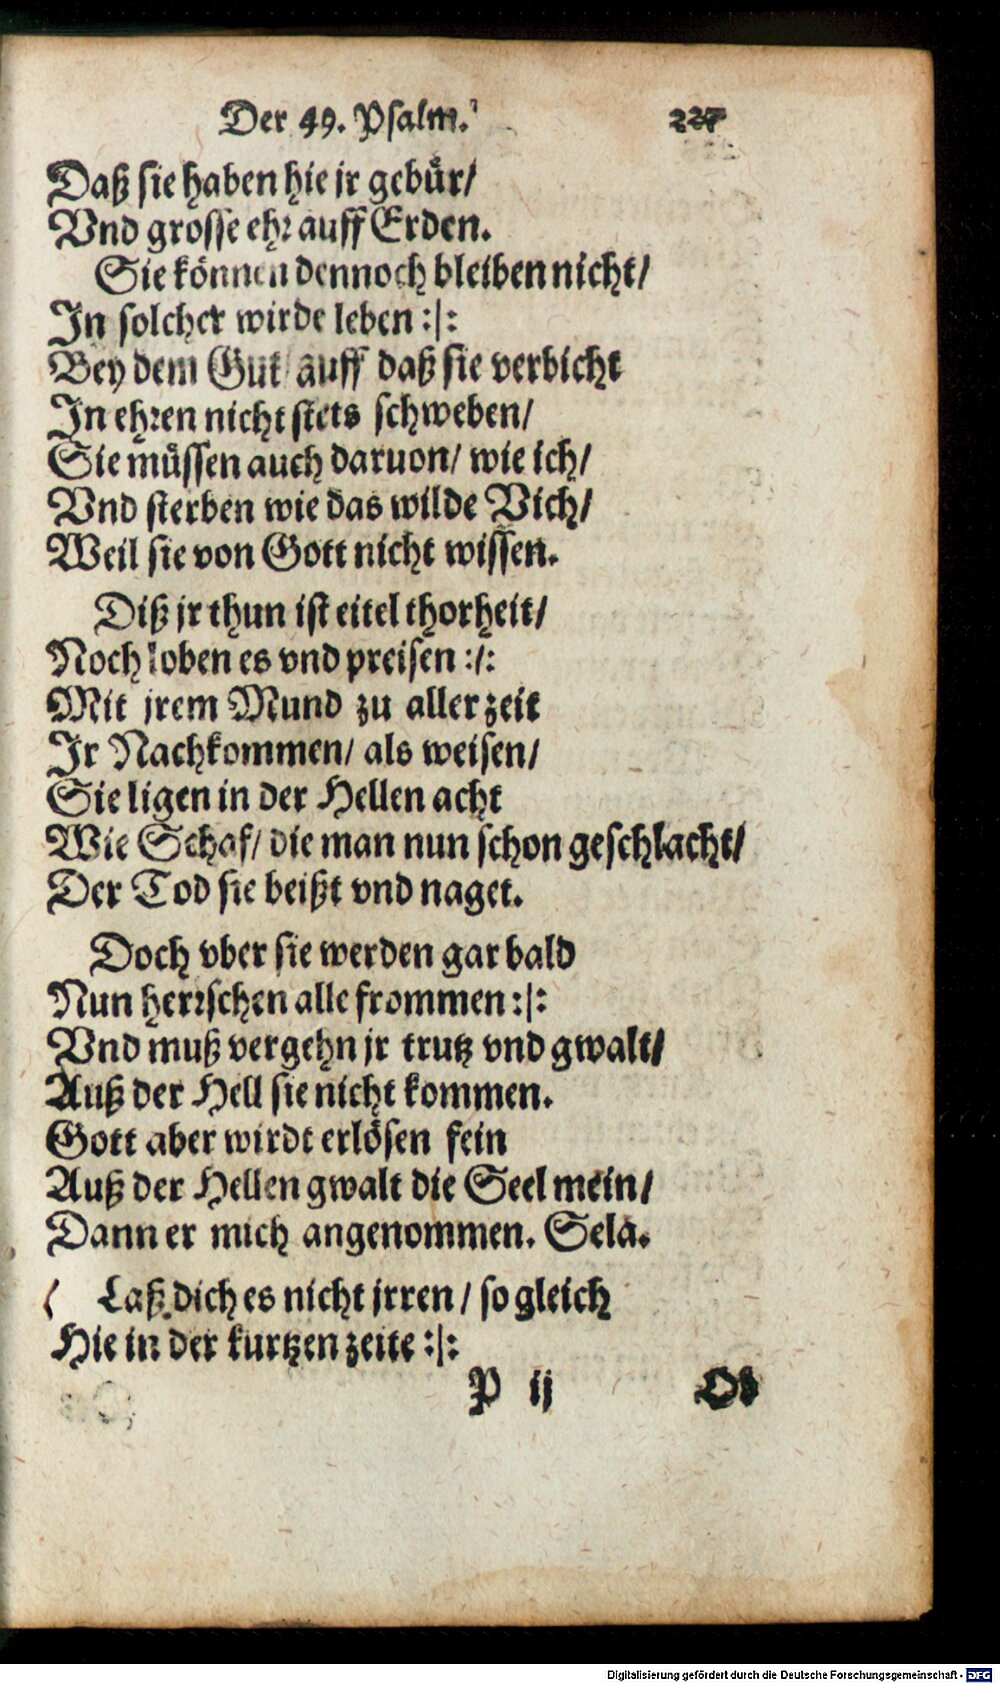 Der 49. Psalm. 227
Daß sie haben hie jr gebür/
Vnd grosse ehr auff Erden.
Sie können dennoch bleiben nicht/
In solcher wirde leben :|:
Bey dem Gut auff daß sie verbicht
In ehren nicht stets schweben/
Sie müssen auch daruon/ wie ich/
Vnd sterben wie das wilde Vich/
Weil sie von Gott nicht wissen.
Diß jr thun ist eitel thorheit/
Noch loben es vnd preisen :/:
Mit jrem Mund zu aller zeit
Jr Nachkommen/ als weisen/
Sie ligen in der Hellen acht
Wie Schaf/ die man nun schon geschlacht/
Der Tod sie beißt vnd naget.
Doch vber sie werden gar bald
Nun herrschen alle frommen :|:
Vnd muß vergehn jr trutz vnd gwalt/
Auß der Hell sie nicht kommen.
Gott aber wirdt erlösen fein
Auß der Hellen gwalt die Seel mein/
Dann er mich angenommen. Sela.
Laß dich es nicht jrren / so gleich
Hie in der kurtzen zeite :|:
P ij Ob
Digitalisierung gefördert durch die Deutsche Forschungsgemeinschaft - DFG